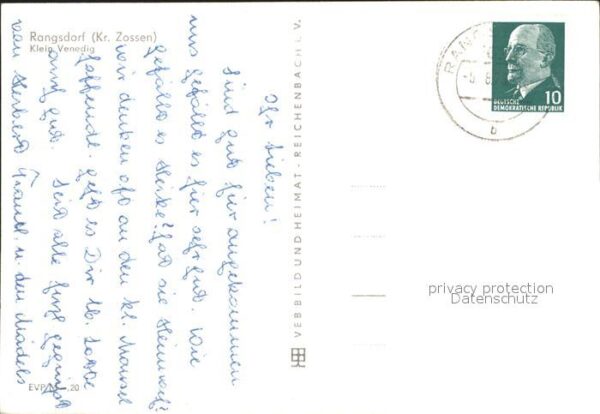 Rangsdorf (Kr. Zossen)
Klein Venedig
Ihr Lieben!
Sind gut hier angekommen
uns gefällt es hier sehr gut. Wie
gefällt es Heike? Hat sie Heimweh?
Wir denken oft an den kl. Mausel
Hoffentl. geht es Dir lb.
auch gut. Seid alle herzl. gegrüßt
von Herbert u. den Mädels
VEB BILD UND HEIMAT · REICHENBACH i. V.
EVP/M -,20
RANGS
-5
b
10
DEUTSCHE
DEMOKRATISCHE REPUBLIK
privacy protection
Datenschutz